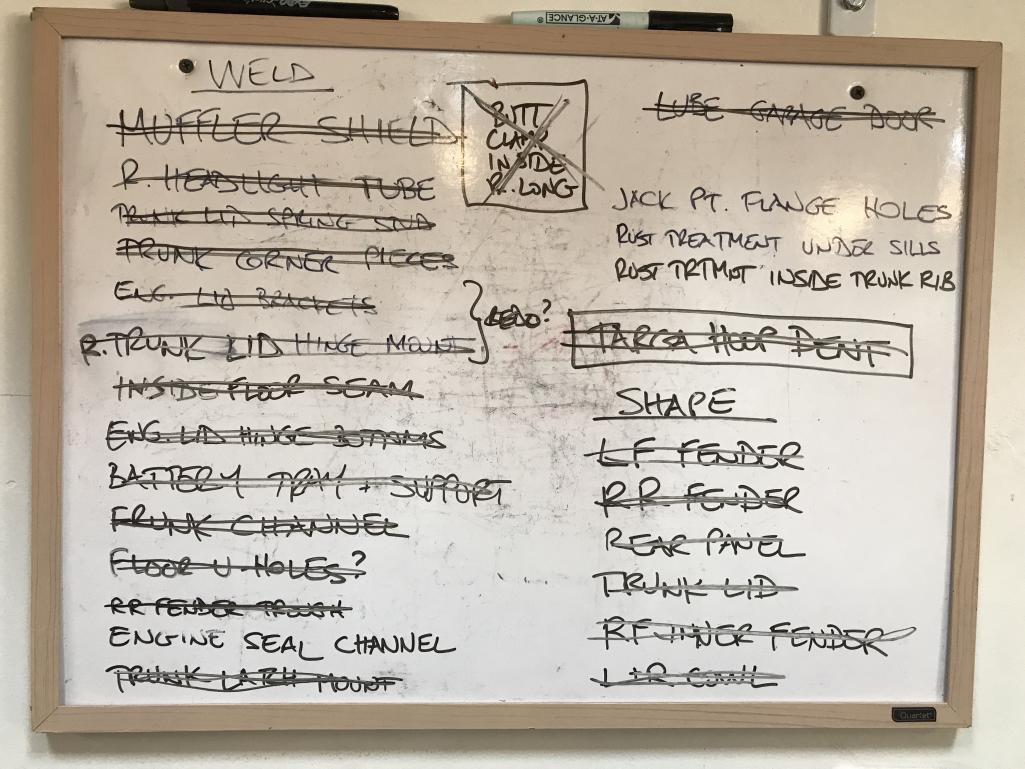 AT-A-GLANCE®
WELD
MUFFLER SHIELD
R. HEADLIGHT TUBE
TRUNK LID SPRING STUD
TRUNK CORNER PIECES
ENG. LID BRACKETS
R. TRUNK LID HINGE MOUNT
REDO?
INSIDE FLOOR SEAM
ENG LID HINGE BOTTOMS
BATTERY TRAY + SUPPORT
FRUNK CHANNEL
FLOOR U HOLES?
RR FENDER TROUGH
ENGINE SEAL CHANNEL
TRUNK LATCH MOUNT
BUTT
CLAMP
INSIDE
R. LONG
LUBE GARAGE DOOR
JACK PT. FLANGE HOLES
RUST TREATMENT UNDER SILLS
RUST TRTMNT INSIDE TRUNK RIB
TARGA HOOP DENT
SHAPE
LF FENDER
RR FENDER
REAR PANEL
TRUNK LID
RF INNER FENDER
L+R COWL
Quartet